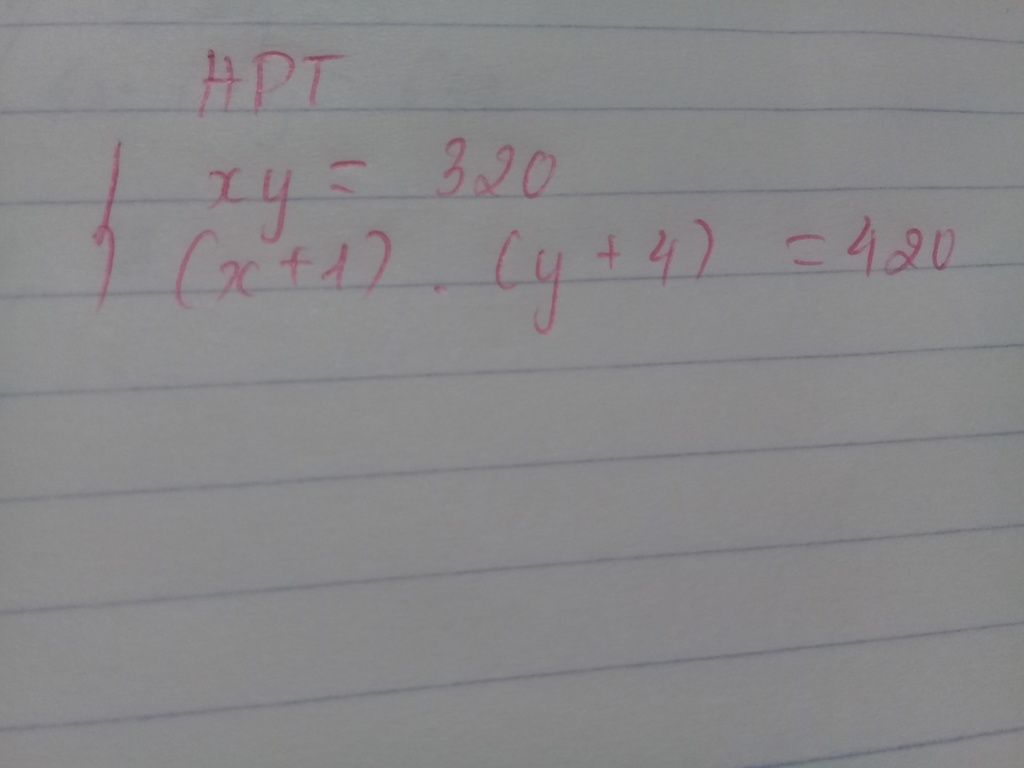 HPT
xy = 320
(x+1) . (y+4) = 420